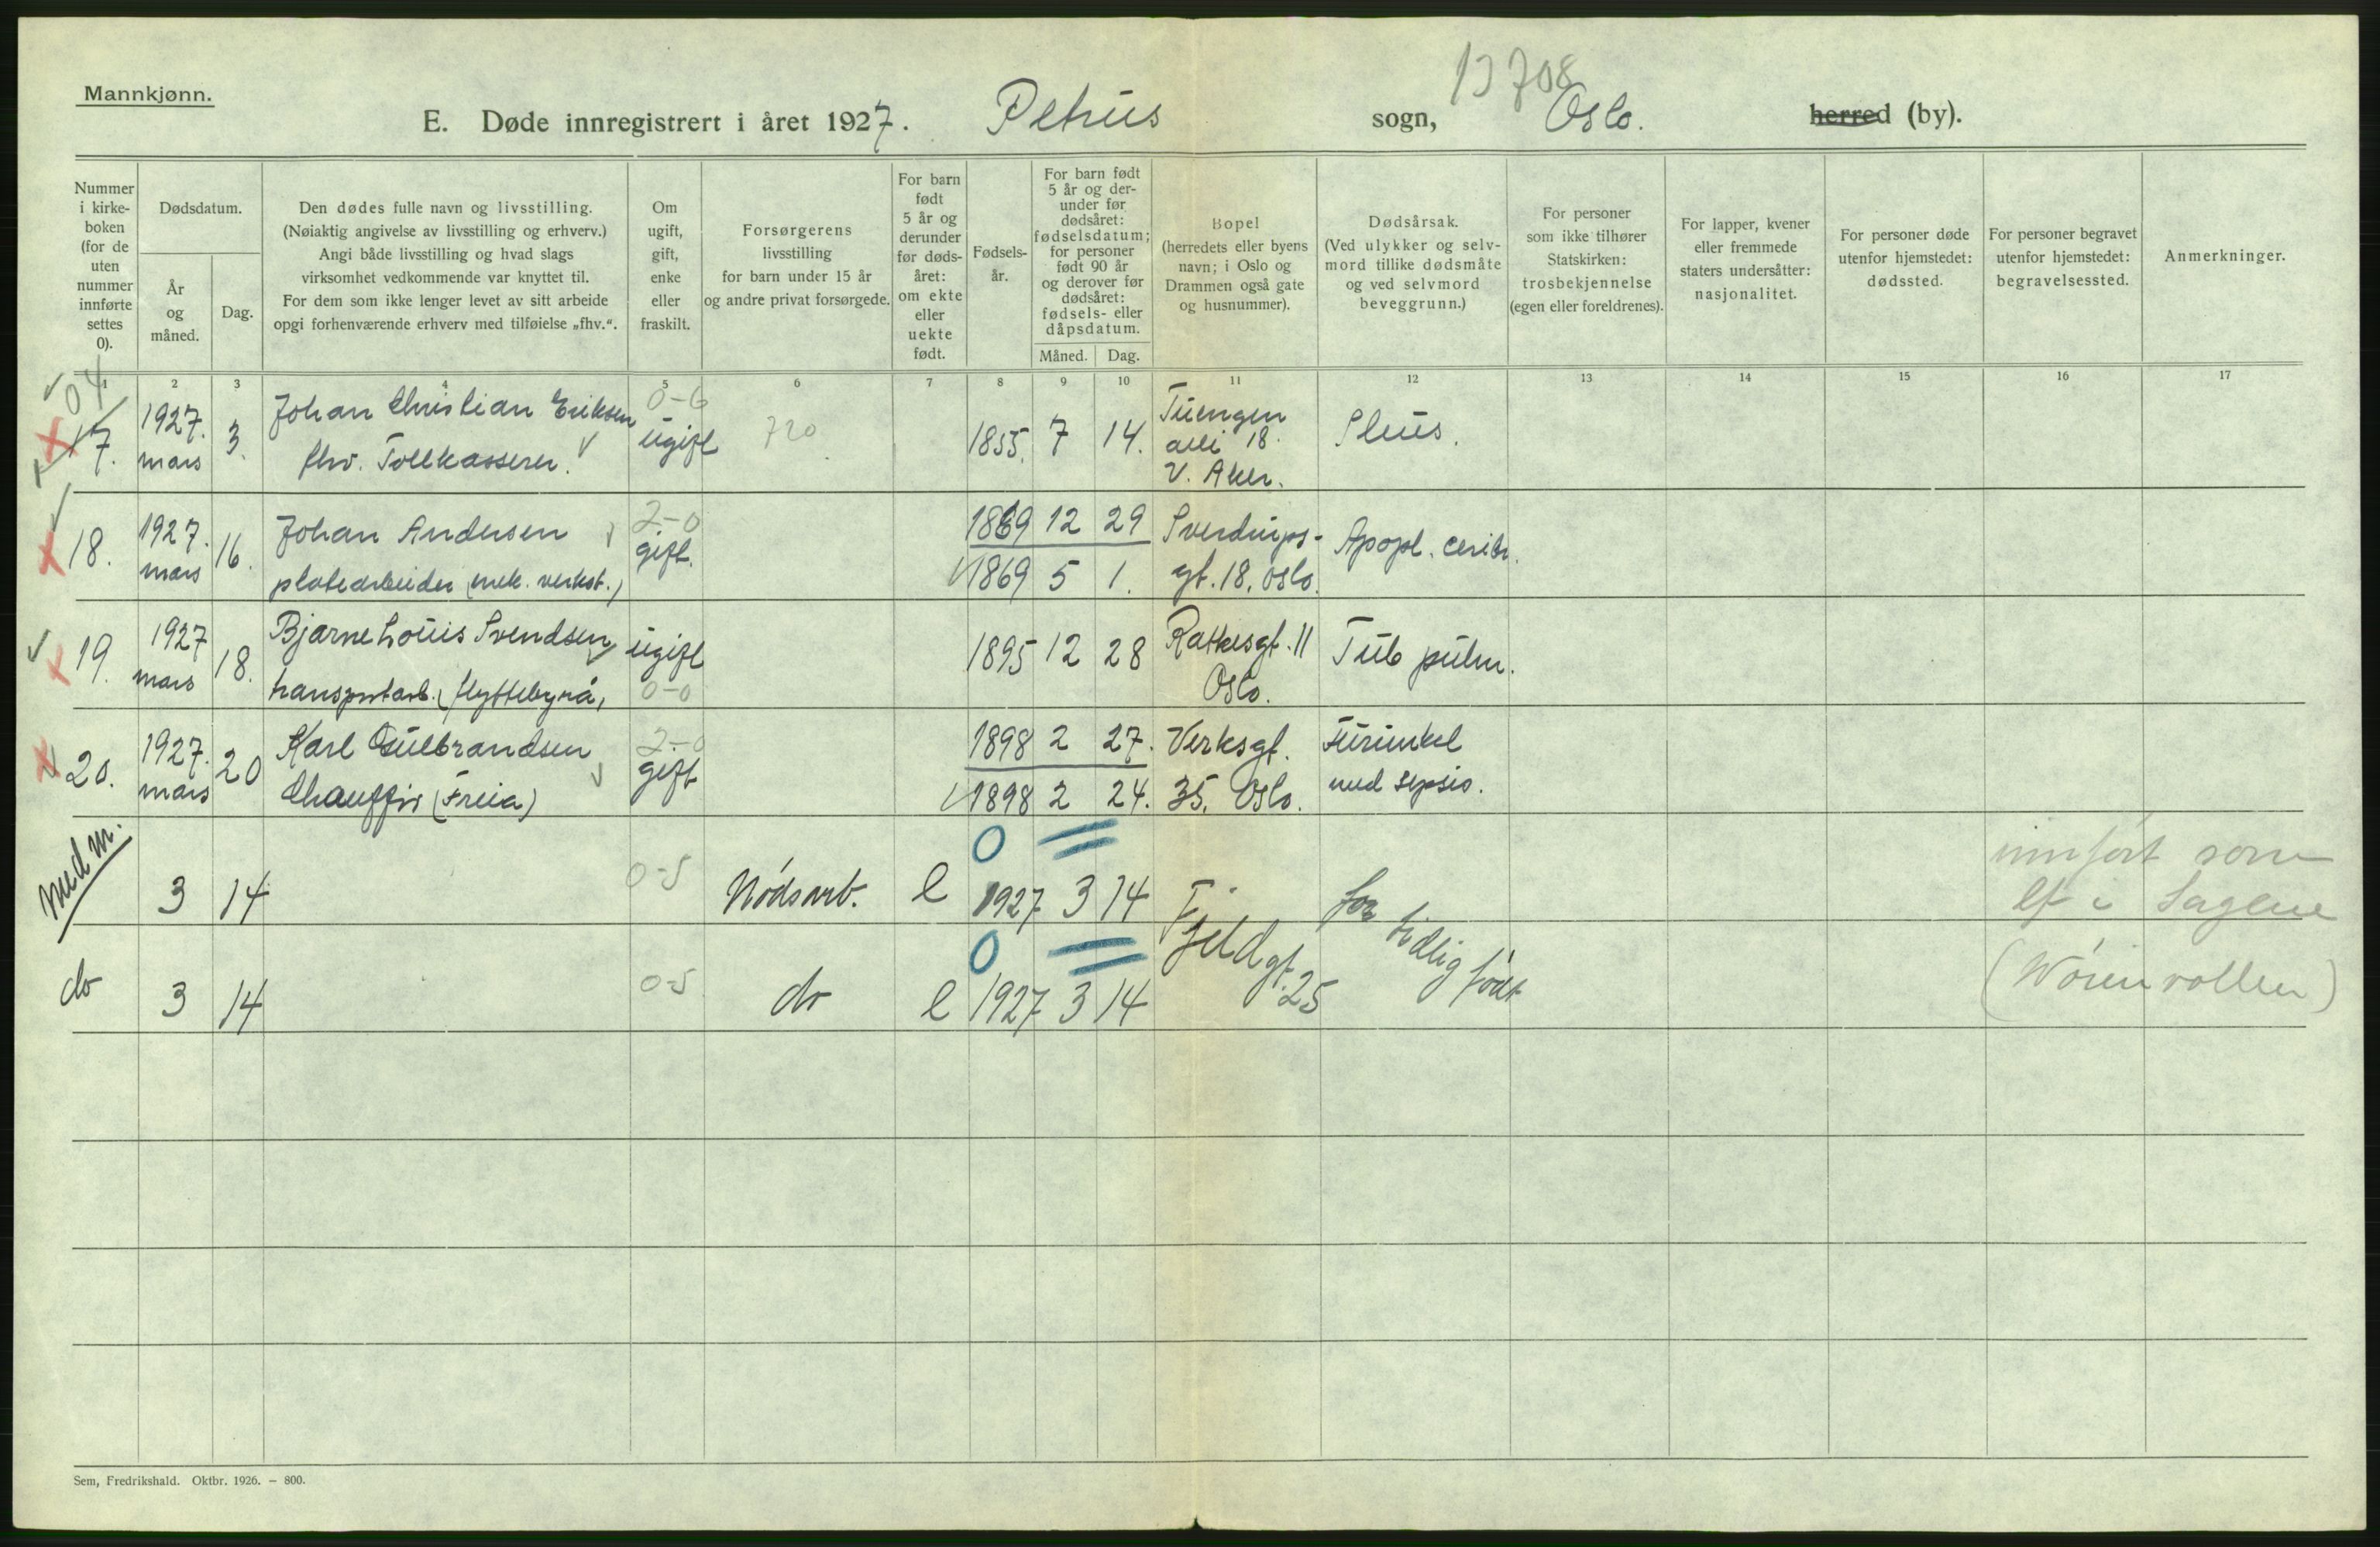 Mannkjønn.
13708
E. Døde innregistrert i året 1927. Petrus sogn, Oslo. herred (by).
Nummer i kirke- boken (for de uten nummer innførte settes 0).
Dødsdatum.
År og måned.
Dag.
Den dødes fulle navn og livsstilling.
(Nøiaktig angivelse av livsstilling og erhverv.)
Angi både livsstilling og hvad slags
virksomhet vedkommende var knyttet til.
For dem som ikke lenger levet av sitt arbeide
opgi forhenværende erhverv med tilføielse „fhv.“.
Om ugift, gift, enke eller fraskilt.
Forsørgerens
livsstilling
for barn under 15 år
og andre privat forsørgede.
For barn født 5 år og derunder før døds- året: om ekte eller uekte født.
Fødsels- år.
For barn født 5 år og der- under før dødsåret: fødselsdatum; for personer født 90 år og derover før dødsåret: fødsels- eller dåpsdatum.
Måned. Dag.
Bopel
(herredets eller byens
navn; i Oslo og
Drammen også gate
og husnummer).
Dødsårsak.
(Ved ulykker og selv-
mord tillike dødsmåte
og ved selvmord
beveggrunn.)
For personer
som ikke tilhører
Statskirken:
trosbekjennelse
(egen eller foreldrenes).
For lapper, kvener
eller fremmede
staters undersåtter:
nasjonalitet.
For personer døde
utenfor hjemstedet:
dødssted.
For personer begravet
utenfor hjemstedet:
begravelsessted.
Anmerkninger.
1 2 3 4 5 6 7 8 9 10 11 12 13 14 15 16 17
04
17. 1927. mars 3. Johan Christian Eriksen
fhv. Tollkasserer. 0-6 ugift 720 1855. 7 14. Tuengen
alle 18.
V. Aker. Ileus.
18. 1927. mars 16. Johan Andersen
platearbeider (mek. verkst.) 2-0 gift. 1869 12 29
1869 5 1. Sverdrups-
gt. 18. Oslo. Apopl. cerebr.
19. 1927 mars 18. Bjarne Louis Svendsen
transportarb. (flyttebyrå, ugift 0-0 1895 12 28 Rathkesgt. 11
Oslo. Tub pulm.
20. 1927. mars 20 Karl Gulbrandsen
Chauffør (Freia) 2-0 gift 1898 2 27.
1898 2 24. Verksgt.
35. Oslo. Furunkel
med sepsis.
med m. 3 14 0-5 Nødsarb. e 0 1927 3 14 Fjeldgt. 25 for tidlig født
innført som
lf i Sagene
do 3 14 0-5 do e 0 1927 3 14
Sem, Fredrikshald. Oktbr. 1926. — 800.